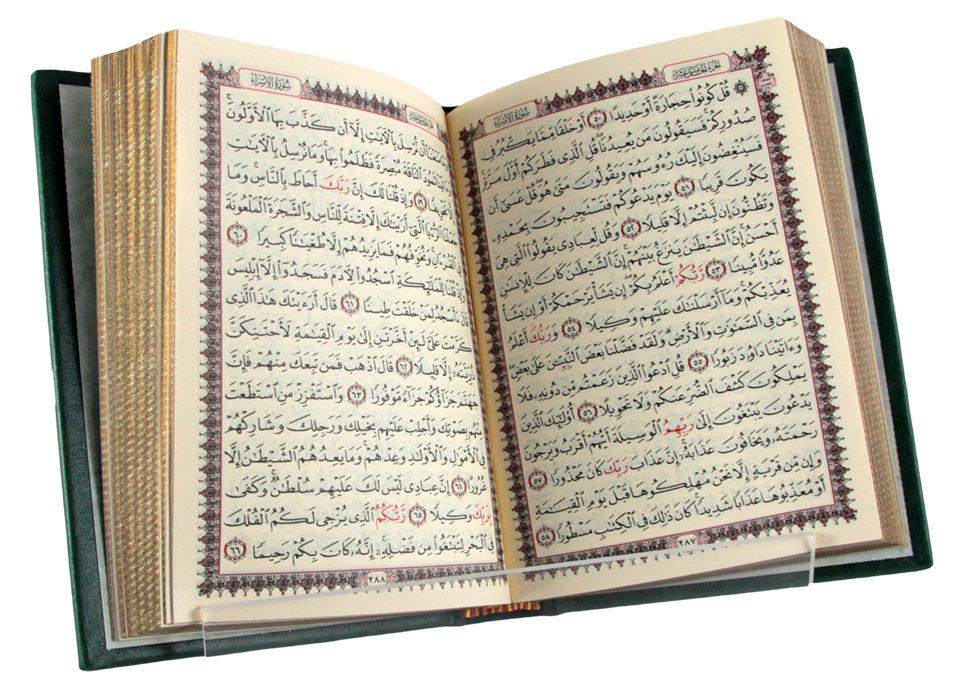 سُورَةُ الإِسْرَاءِ
الجُزْءُ الخَامِسَ عَشَرَ
۞ قُلْ كُونُوا۟ حِجَارَةً أَوْ حَدِيدًا ٥٠ أَوْ خَلْقًا مِّمَّا يَكْبُرُ فِى
صُدُورِكُمْ ۚ فَسَيَقُولُونَ مَن يُعِيدُنَا ۖ قُلِ ٱلَّذِى فَطَرَكُمْ أَوَّلَ مَرَّةٍ ۚ
فَسَيُنْغِضُونَ إِلَيْكَ رُءُوسَهُمْ وَيَقُولُونَ مَتَىٰ هُوَ ۖ قُلْ عَسَىٰٓ أَن
يَكُونَ قَرِيبًا ٥١ يَوْمَ يَدْعُوكُمْ فَتَسْتَجِيبُونَ بِحَمْدِهِۦ
وَتَظُنُّونَ إِن لَّبِثْتُمْ إِلَّا قَلِيلًا ٥٢ وَقُل لِّعِبَادِى يَقُولُوا۟ ٱلَّتِى هِىَ
أَحْسَنُ ۚ إِنَّ ٱلشَّيْطَٰنَ يَنزَغُ بَيْنَهُمْ ۚ إِنَّ ٱلشَّيْطَٰنَ كَانَ لِلْإِنسَٰنِ
عَدُوًّا مُّبِينًا ٥٣ رَّبُّكُمْ أَعْلَمُ بِكُمْ ۖ إِن يَشَأْ يَرْحَمْكُمْ أَوْ إِن يَشَأْ
يُعَذِّبْكُمْ ۚ وَمَآ أَرْسَلْنَٰكَ عَلَيْهِمْ وَكِيلًا ٥٤ وَرَبُّكَ أَعْلَمُ
بِمَن فِى ٱلسَّمَٰوَٰتِ وَٱلْأَرْضِ ۗ وَلَقَدْ فَضَّلْنَا بَعْضَ ٱلنَّبِيِّۦنَ عَلَىٰ بَعْضٍ ۖ
وَءَاتَيْنَا دَاوُۥدَ زَبُورًا ٥٥ قُلِ ٱدْعُوا۟ ٱلَّذِينَ زَعَمْتُم مِّن دُونِهِۦ فَلَا
يَمْلِكُونَ كَشْفَ ٱلضُّرِّ عَنكُمْ وَلَا تَحْوِيلًا ٥٦ أُو۟لَٰٓئِكَ ٱلَّذِينَ
يَدْعُونَ يَبْتَغُونَ إِلَىٰ رَبِّهِمُ ٱلْوَسِيلَةَ أَيُّهُمْ أَقْرَبُ وَيَرْجُونَ
رَحْمَتَهُۥ وَيَخَافُونَ عَذَابَهُۥٓ ۚ إِنَّ عَذَابَ رَبِّكَ كَانَ مَحْذُورًا ٥٧
وَإِن مِّن قَرْيَةٍ إِلَّا نَحْنُ مُهْلِكُوهَا قَبْلَ يَوْمِ ٱلْقِيَٰمَةِ
أَوْ مُعَذِّبُوهَا عَذَابًا شَدِيدًا ۚ كَانَ ذَٰلِكَ فِى ٱلْكِتَٰبِ مَسْطُورًا ٥٨
٢٨٧
سُورَةُ الإِسْرَاءِ
أَن نُّرْسِلَ بِٱلْءَايَٰتِ إِلَّآ أَن كَذَّبَ بِهَا ٱلْأَوَّلُونَ ۚ
ٱلنَّاقَةَ مُبْصِرَةً فَظَلَمُوا۟ بِهَا ۚ وَمَا نُرْسِلُ بِٱلْءَايَٰتِ
٥٩ وَإِذْ قُلْنَا لَكَ إِنَّ رَبَّكَ أَحَاطَ بِٱلنَّاسِ ۚ وَمَا
ٱلَّتِىٓ أَرَيْنَٰكَ إِلَّا فِتْنَةً لِّلنَّاسِ وَٱلشَّجَرَةَ ٱلْمَلْعُونَةَ
وَنُخَوِّفُهُمْ فَمَا يَزِيدُهُمْ إِلَّا طُغْيَٰنًا كَبِيرًا ٦٠
قُلْنَا لِلْمَلَٰٓئِكَةِ ٱسْجُدُوا۟ لِءَادَمَ فَسَجَدُوٓا۟ إِلَّآ إِبْلِيسَ
لِمَنْ خَلَقْتَ طِينًا ٦١ قَالَ أَرَءَيْتَكَ هَٰذَا ٱلَّذِى
كَرَّمْتَ عَلَىَّ لَئِنْ أَخَّرْتَنِ إِلَىٰ يَوْمِ ٱلْقِيَٰمَةِ لَأَحْتَنِكَنَّ
ذُرِّيَّتَهُۥٓ إِلَّا قَلِيلًا ٦٢ قَالَ ٱذْهَبْ فَمَن تَبِعَكَ مِنْهُمْ فَإِنَّ
جَهَنَّمَ جَزَآؤُكُمْ جَزَآءً مَّوْفُورًا ٦٣ وَٱسْتَفْزِزْ مَنِ ٱسْتَطَعْتَ
مِنْهُم بِصَوْتِكَ وَأَجْلِبْ عَلَيْهِم بِخَيْلِكَ وَرَجِلِكَ وَشَارِكْهُمْ
فِى ٱلْأَمْوَٰلِ وَٱلْأَوْلَٰدِ وَعِدْهُمْ ۚ وَمَا يَعِدُهُمُ ٱلشَّيْطَٰنُ إِلَّا
غُرُورًا ٦٤ إِنَّ عِبَادِى لَيْسَ لَكَ عَلَيْهِمْ سُلْطَٰنٌ ۚ وَكَفَىٰ
بِرَبِّكَ وَكِيلًا ٦٥ رَّبُّكُمُ ٱلَّذِى يُزْجِى لَكُمُ ٱلْفُلْكَ
فِى ٱلْبَحْرِ لِتَبْتَغُوا۟ مِن فَضْلِهِۦٓ ۚ إِنَّهُۥ كَانَ بِكُمْ رَحِيمًا ٦٦
٢٨٨